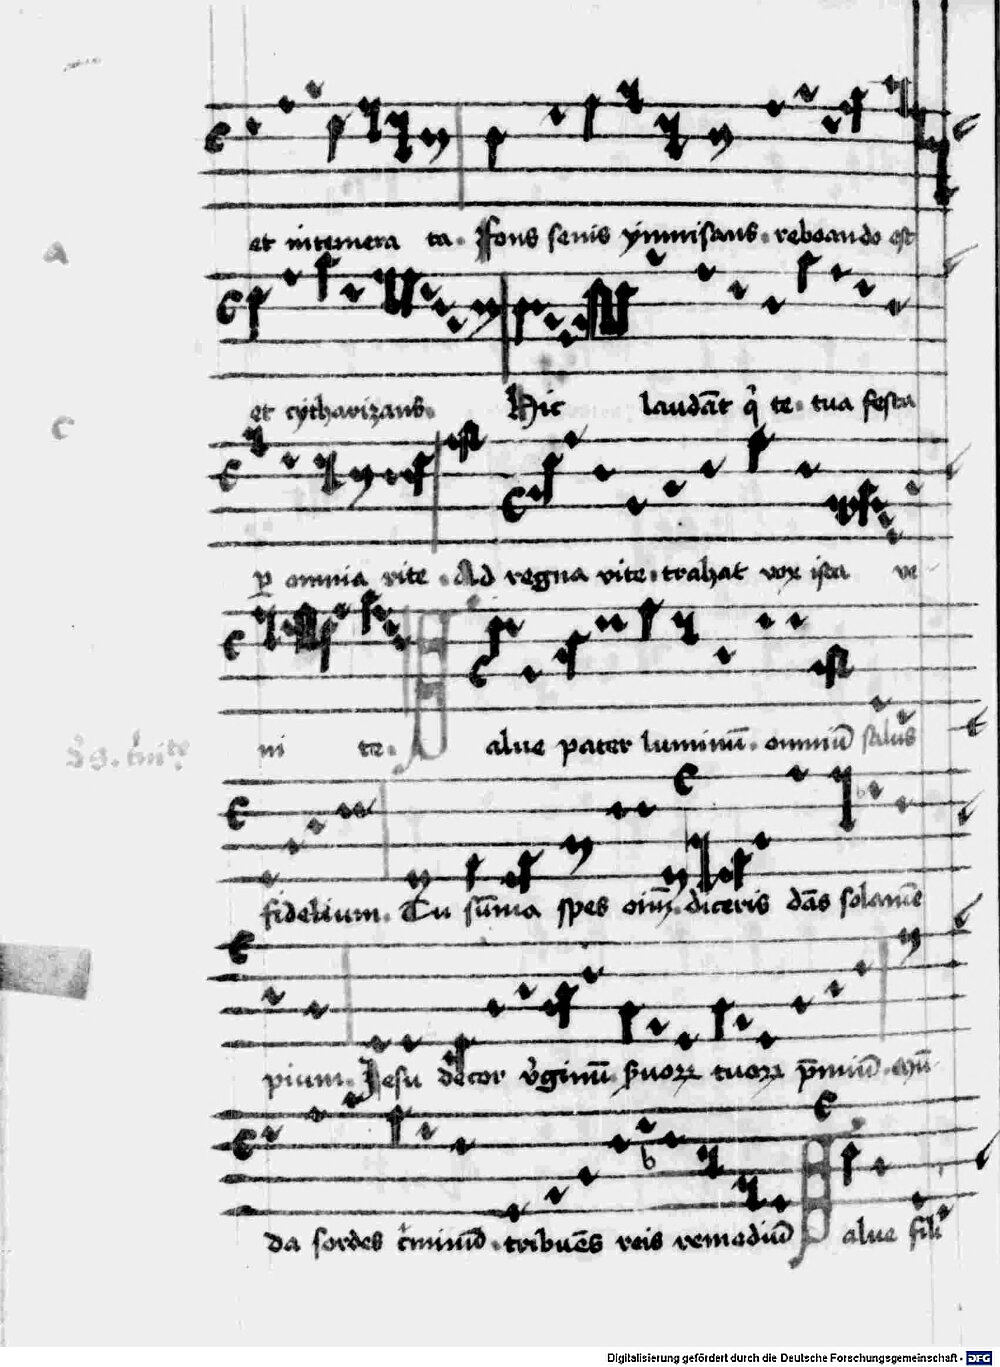 et intemerata. Fons senis ymnisans. reboando est
A
et cytharizans. Hic laudāt q̄ te. tua festa
C
p̱ omnia rite. Ad regna vite. trahat vox ista ve
nite. Salue pater luminū. omniū salus
fidelium. Tu sūma spes oīm. diceris dās solamē
pium. Jesu decor v̄ginū. tuoꝝ p̄miū.
da sordes c̓minūd. tribuēs reis remediū Salue fili
Digitalisierung gefördert durch die Deutsche Forschungsgemeinschaft - DFG